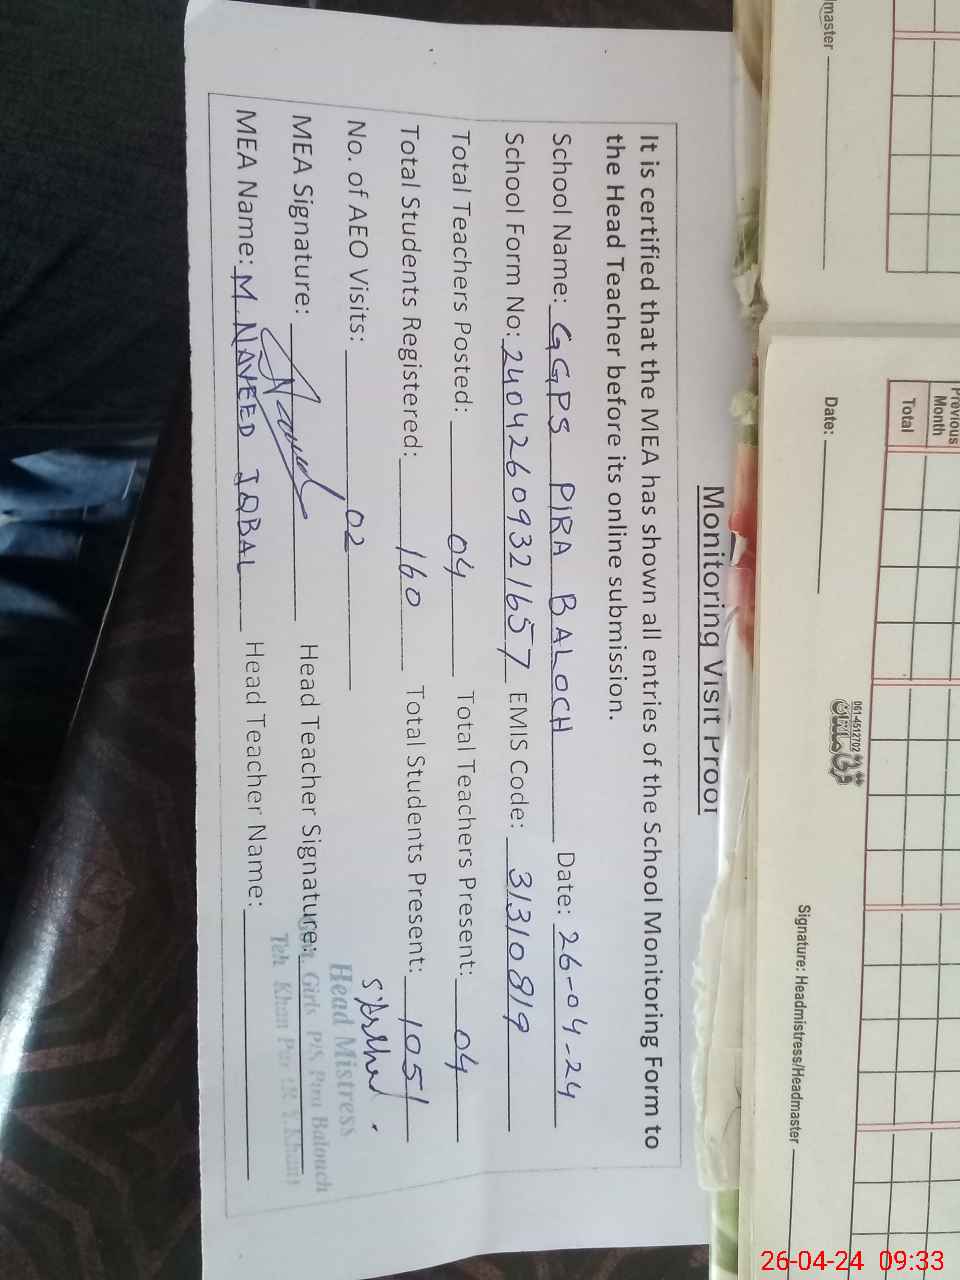 Monitoring Visit Proof
It is certified that the MEA has shown all entries of the School Monitoring Form to
the Head Teacher before its online submission.
School Name: GGPS PIRA BALOCH Date: 26-04-24
School Form No: 24042609321657 EMIS Code: 31310819
Total Teachers Posted: 04 Total Teachers Present: 04
Total Students Registered: 160 Total Students Present: 105
No. of AEO Visits: 02
MEA Signature: Head Teacher Signature:
MEA Name: M. NAVEED IQBAL Head Teacher Name:
Head Mistress
Girls P/S Pira Balouch
Teh Khan Pur
master
Previous
Month
Total
Date:
061-4512702
Signature: Headmistress/Headmaster
26-04-24 09:33